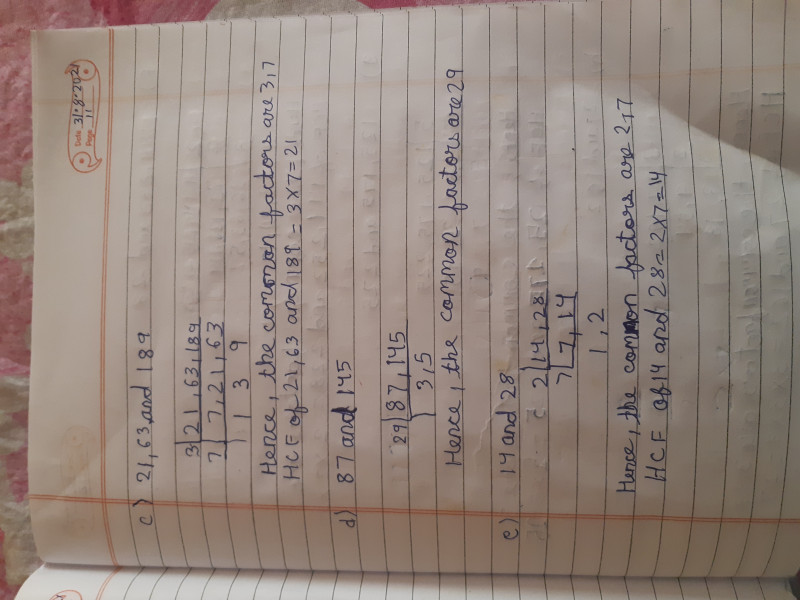 Date 31.8.2021
Page 11
c) 21, 63 and 189
3 21, 63, 189
7 7, 21, 63
1 3 9
Hence, the common factors are 3,7
HCF of 21, 63 and 189 = 3×7=21
d) 87 and 145
29 87, 145
3, 5
Hence, the common factors are 29
e) 14 and 28
2 14, 28
7 7, 14
1, 2
Hence, the common factors are 2,7
HCF of 14 and 28 = 2×7=14